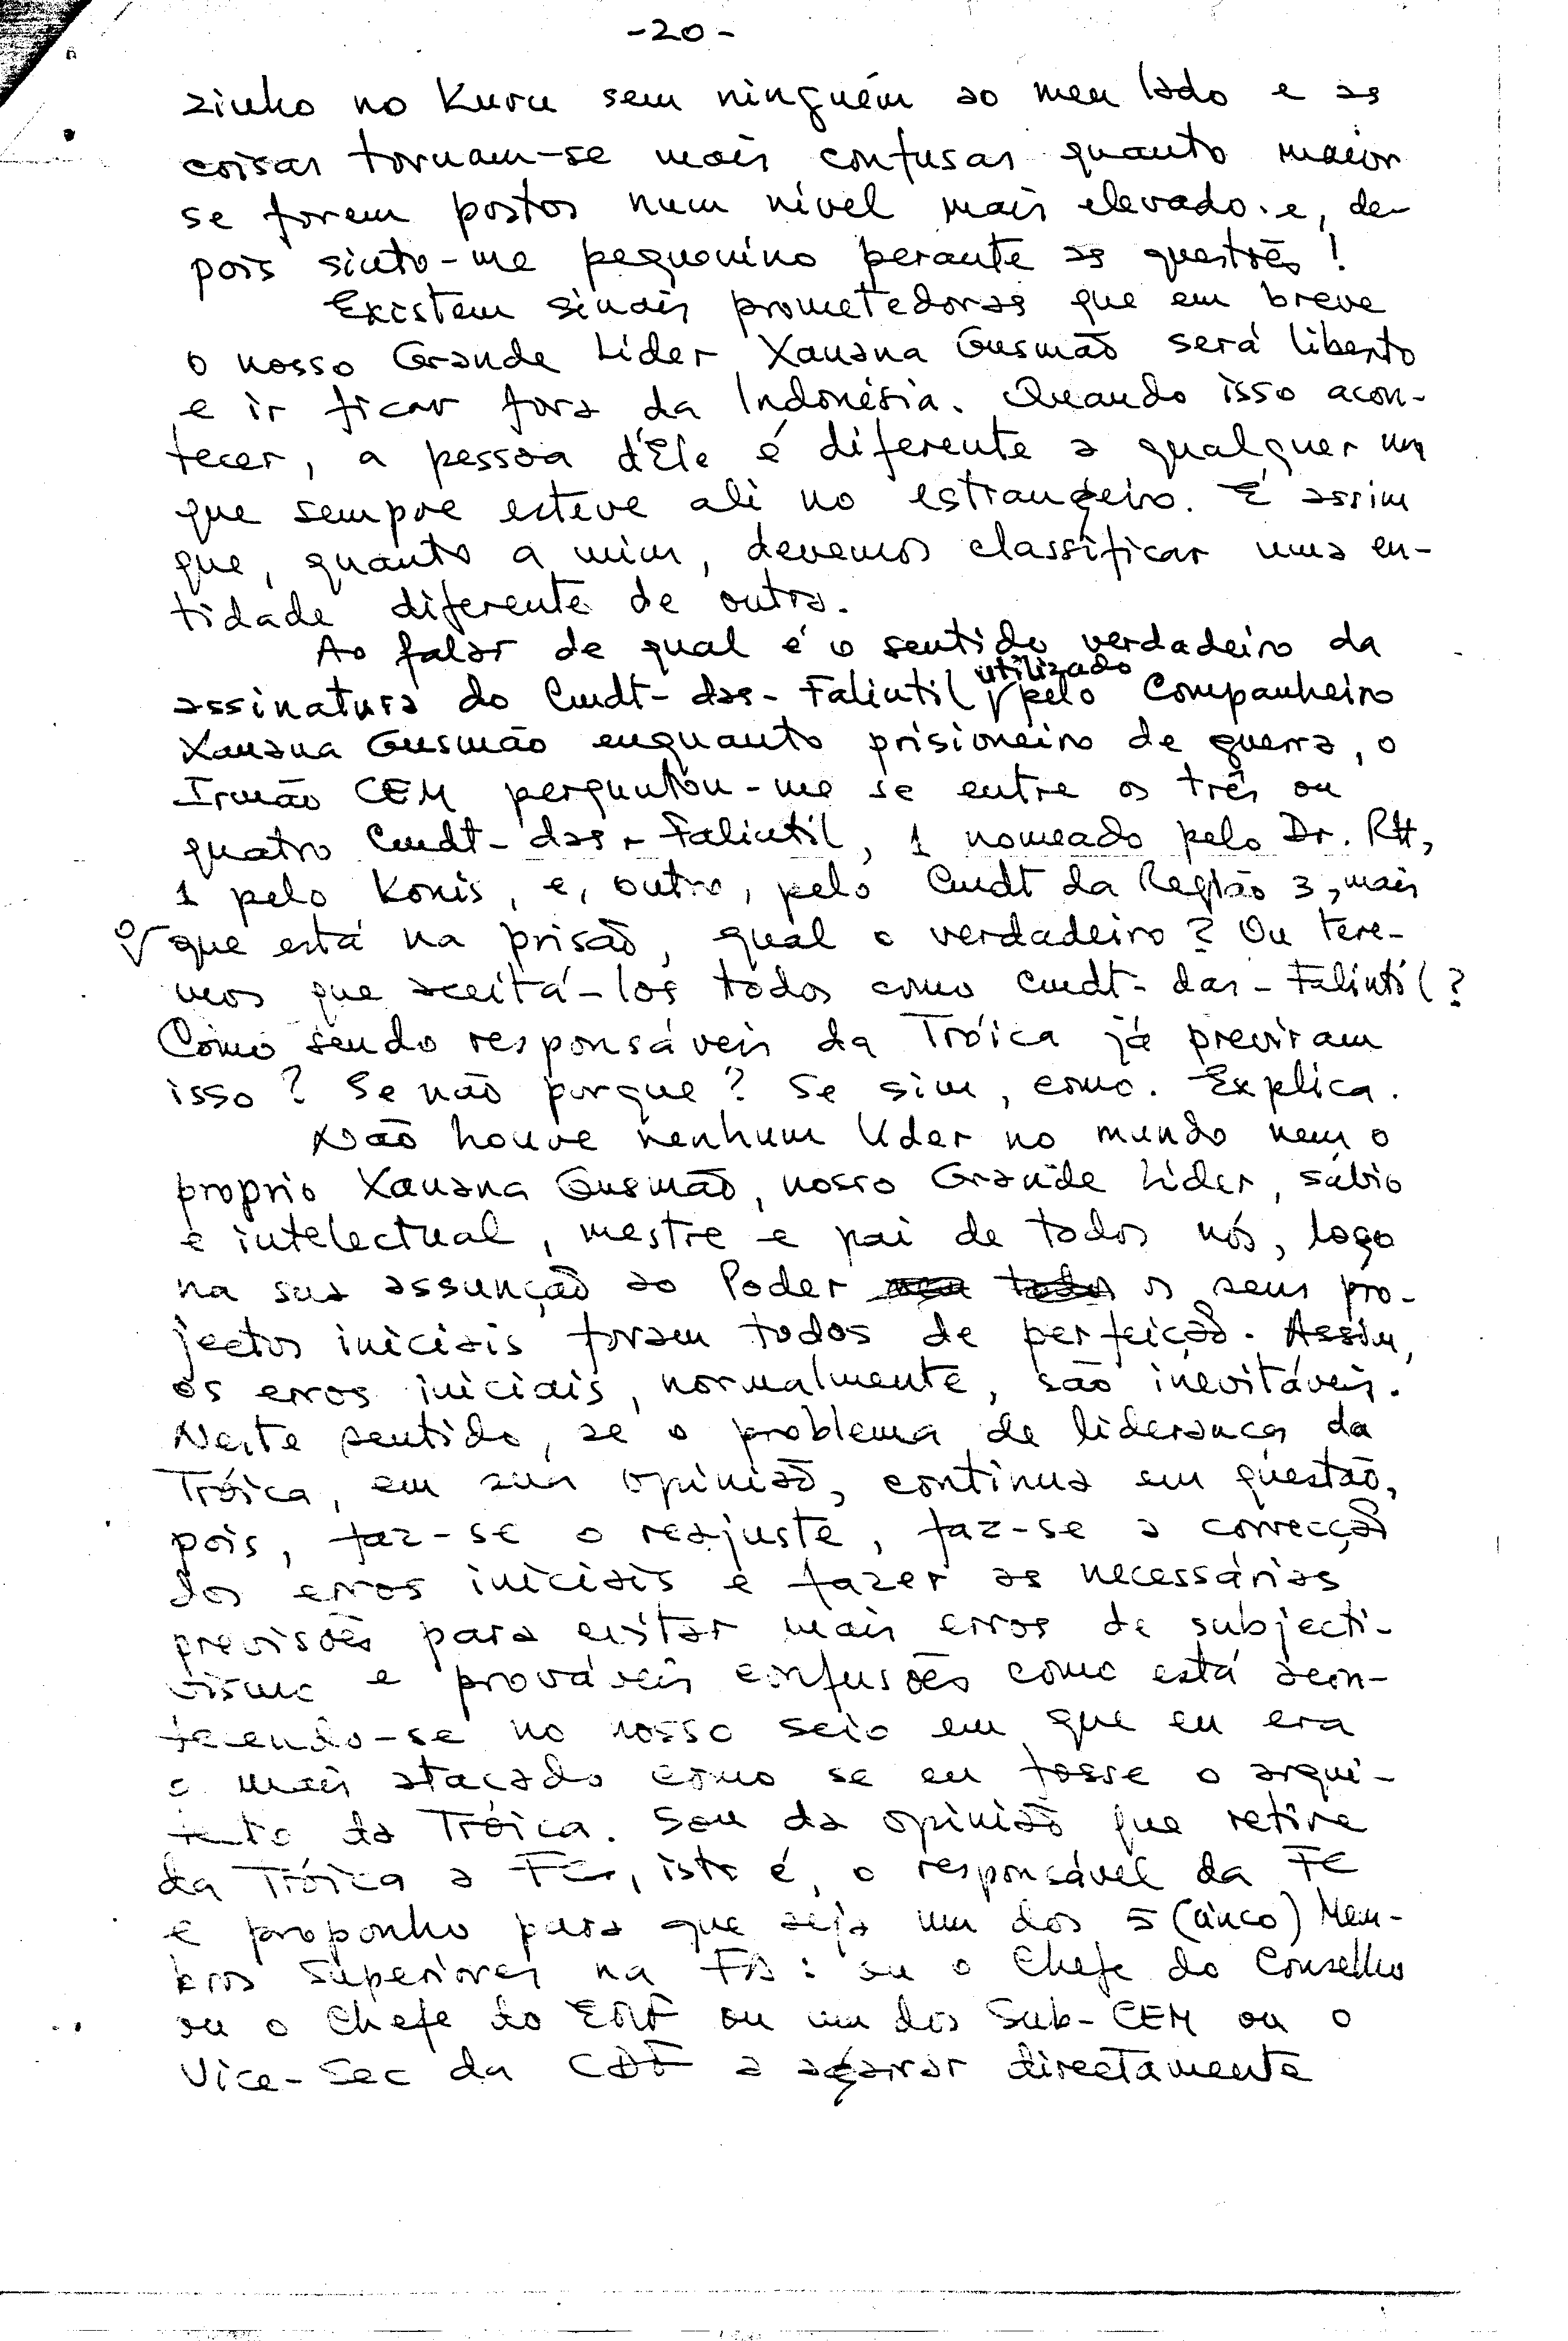 -20-
zinho no Kuru sem ninguém ao meu lado e as
coisas tornam-se mais confusas quanto maior
se forem postos num nível mais elevado. e, de-
pois sinto-me pequenino perante as questões!
Existem sinais prometedoras que em breve
o nosso Grande Líder Xanana Gusmão será liberto
e ir ficar fora da Indonésia. Quando isso acon-
tecer, a pessoa d'Ele é diferente a qualquer um
que sempre esteve ali no estrangeiro. É assim
que, quanto a mim, devemos classificar uma en-
tidade diferente de outra.
Ao falar de qual é o sentido verdadeiro da
assinatura do Cmdt-das-Falintil utilizado pelo Companheiro
Xanana Gusmão enquanto prisioneiro de guerra, o
Irmão CEM perguntou-me se entre os três ou
quatro Cmdt-das-Falintil, 1 nomeado pelo Dr. RH,
1 pelo Konis, e, outro, pelo Cmdt da Região 3, mais
o que está na prisão, qual o verdadeiro? Ou tere-
mos que aceitá-los todos como Cmdt-das-Falintil?
Como sendo responsáveis da Tróica já previram
isso? Se não porque? Se sim, como. Explica.
Não houve nenhum líder no mundo nem o
proprio Xanana Gusmão, nosso Grande Líder, sábio
e intelectual, mestre e pai de todos nós, logo
na sua assunção ao Poder os seus pro-
jectos iniciais foram todos de perfeição. Assim,
os erros iniciais, normalmente, são inevitáveis.
Neste sentido, se o problema de liderança da
Tróica, em sua opinião, continua em questão,
pois, faz-se o reajuste, faz-se a correcção
dos erros iniciais e fazer as necessárias
previsões para evitar mais erros de subjecti-
vismo e prováveis confusões como está acon-
tecendo-se no nosso seio em que eu era
o mais atacado como se eu fosse o arqui-
tecto da Tróica. Sou da opinião que retire
da Tróica a FC, isto é, o responsável da FC
e proponho para que seja um dos 5 (cinco) Mem-
bros Superiores na FA: ou o Chefe do Conselho
ou o Chefe do EMF ou um dos Sub-CEM ou o
Vice-Sec da CDF a agarrar directamente